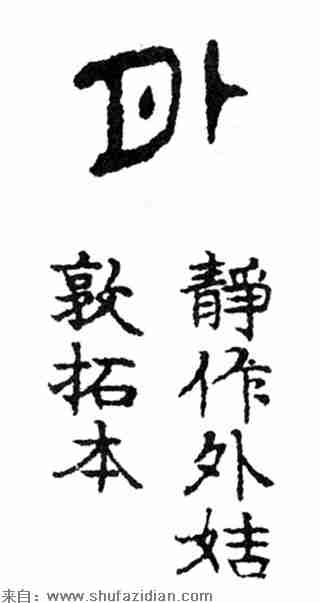 外
靜作外姞
敦拓本
来自：www.shufazidian.com